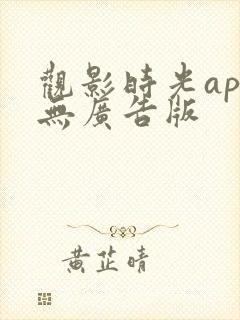 觀影時光ap
無廣告版
黃芷晴